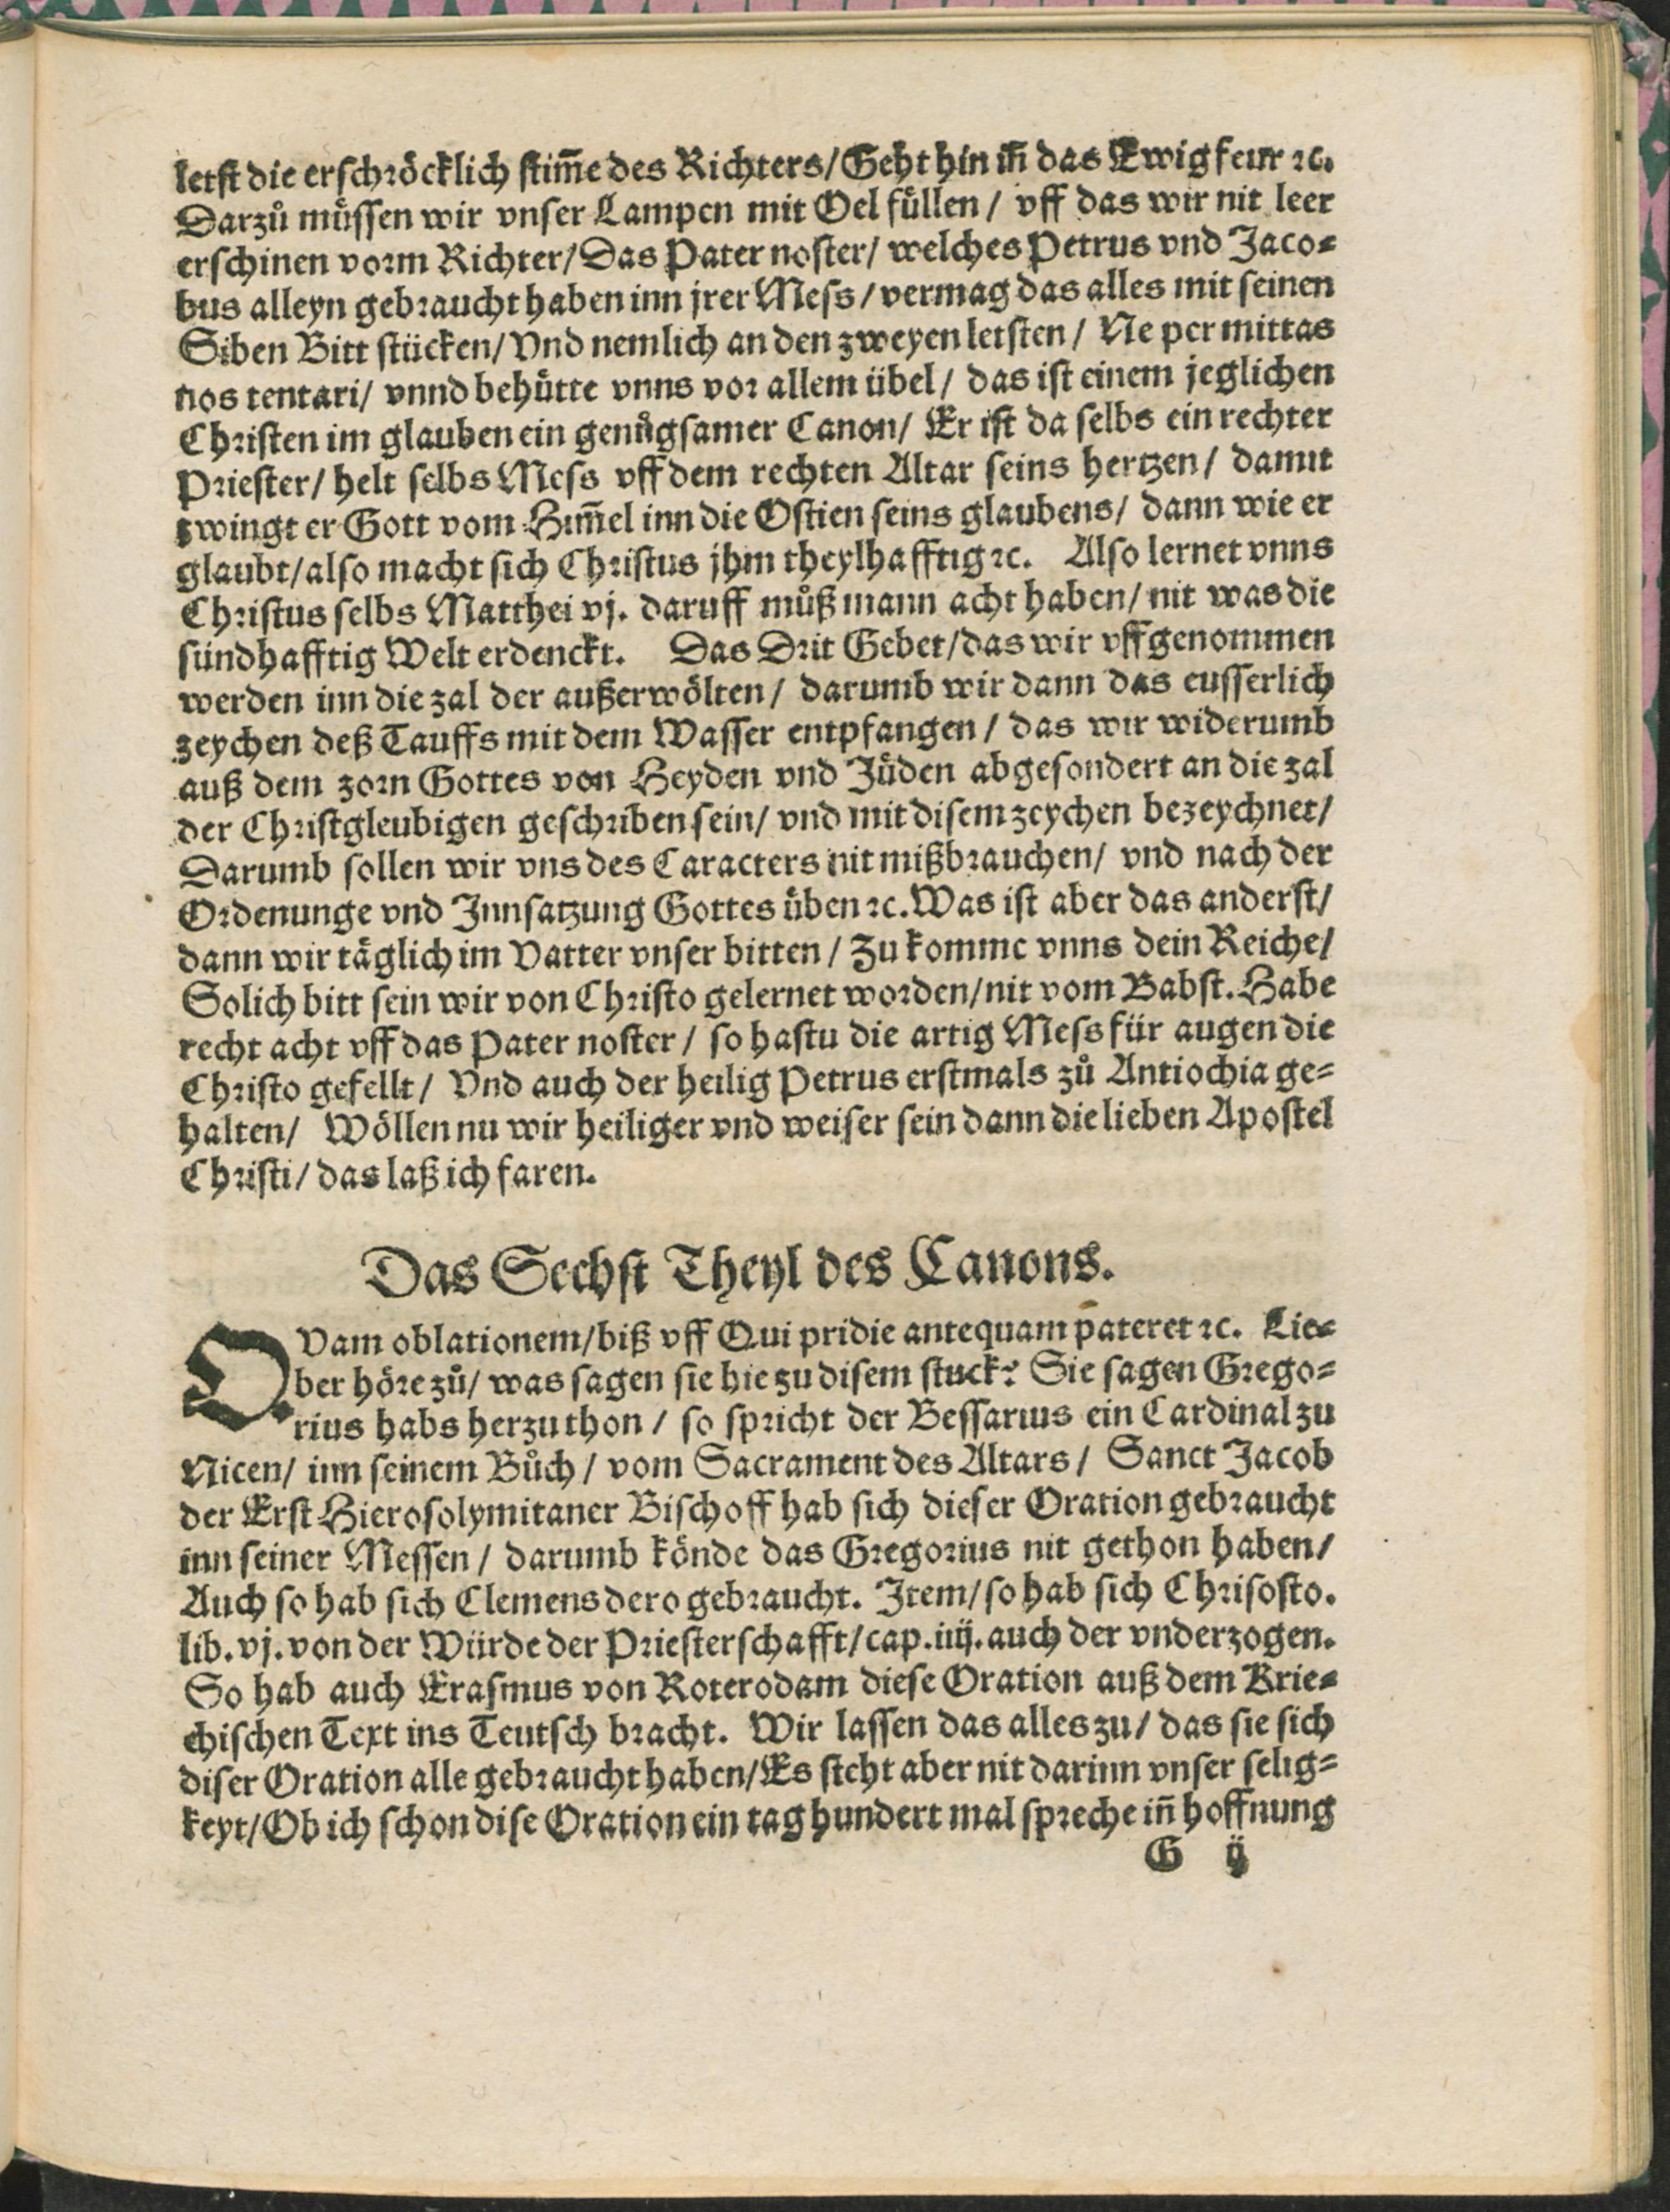 letst die erschröcklich stim̃e des Richters/ Geht hin iñ das Ewig feur ꝛc.
Darzů müssen wir vnser Lampen mit Oel füllen / vff das wir nit leer
erschinen vorm Richter/ Das Pater noster/ welches Petrus vnd Jaco⸗
bus alleyn gebraucht haben inn jrer Mess / vermag das alles mit seinen
Siben Bitt stücken/ Vnd nemlich an den zweyen letsten / Ne permittas
nos tentari/ vnnd behütte vnns vor allem übel / das ist einem jeglichen
Christen im glauben ein genůgsamer Canon/ Er ist da selbs ein rechter
Priester/ helt selbs Mess vff dem rechten Altar seins hertzen / damit
zwingt er Gott vom Him̃el inn die Ostien seins glaubens/ dann wie er
glaubt/ also macht sich Christus jhm theylhafftig ꝛc. Also lernet vnns
Christus selbs Matthei vj. daruff můß mann acht haben/ nit was die
sündhafftig Welt erdenckt. Das Drit Gebet/ das wir vffgenommen
werden inn die zal der außerwölten / darumb wir dann das eusserlich
zeychen deß Tauffs mit dem Wasser entpfangen / das wir widerumb
auß dem zorn Gottes von Heyden vnd Jüden abgesondert an die zal
der Christgleubigen geschriben sein/ vnd mit disem zeychen bezeychnet/
Darumb sollen wir vns des Caracters nit mißbrauchen/ vnd nach der
Ordenunge vnd Innsatzung Gottes üben ꝛc. Was ist aber das anderst/
dann wir täglich im Vatter vnser bitten / Zu komme vnns dein Reiche/
Solich bitt sein wir von Christo gelernet worden/ nit vom Babst. Habe
recht acht vff das Pater noster / so hastu die artig Mess für augen die
Christo gefellt/ Vnd auch der heilig Petrus erstmals zů Antiochia ge⸗
halten/ Wöllen nu wir heiliger vnd weiser sein dann die lieben Apostel
Christi/ das laß ich faren.
Das Sechst Theyl des Canons.
QVam oblationem/ biß vff Qui pridie antequam pateret ꝛc. Lie⸗
ber höre zů/ was sagen sie hie zu disem stuck? Sie sagen Grego⸗
rius habs herzu thon / so spricht der Bessarius ein Cardinal zu
Nicen/ inn seinem Bůch / vom Sacrament des Altars / Sanct Jacob
der Erst Hierosolymitaner Bischoff hab sich dieser Oration gebraucht
inn seiner Messen / darumb könde das Gregorius nit gethon haben/
Auch so hab sich Clemens dero gebraucht. Item/ so hab sich Chrisosto.
lib. vj. von der Würde der Priesterschafft/ cap. iiij. auch der vnderzogen.
So hab auch Erasmus von Roterodam diese Oration auß dem Krie⸗
chischen Text ins Teutsch bracht. Wir lassen das alles zu/ das sie sich
diser Oration alle gebraucht haben/ Es steht aber nit darinn vnser selig⸗
keyt/ Ob ich schon dise Oration ein tag hundert mal spreche iñ hoffnung
G ij